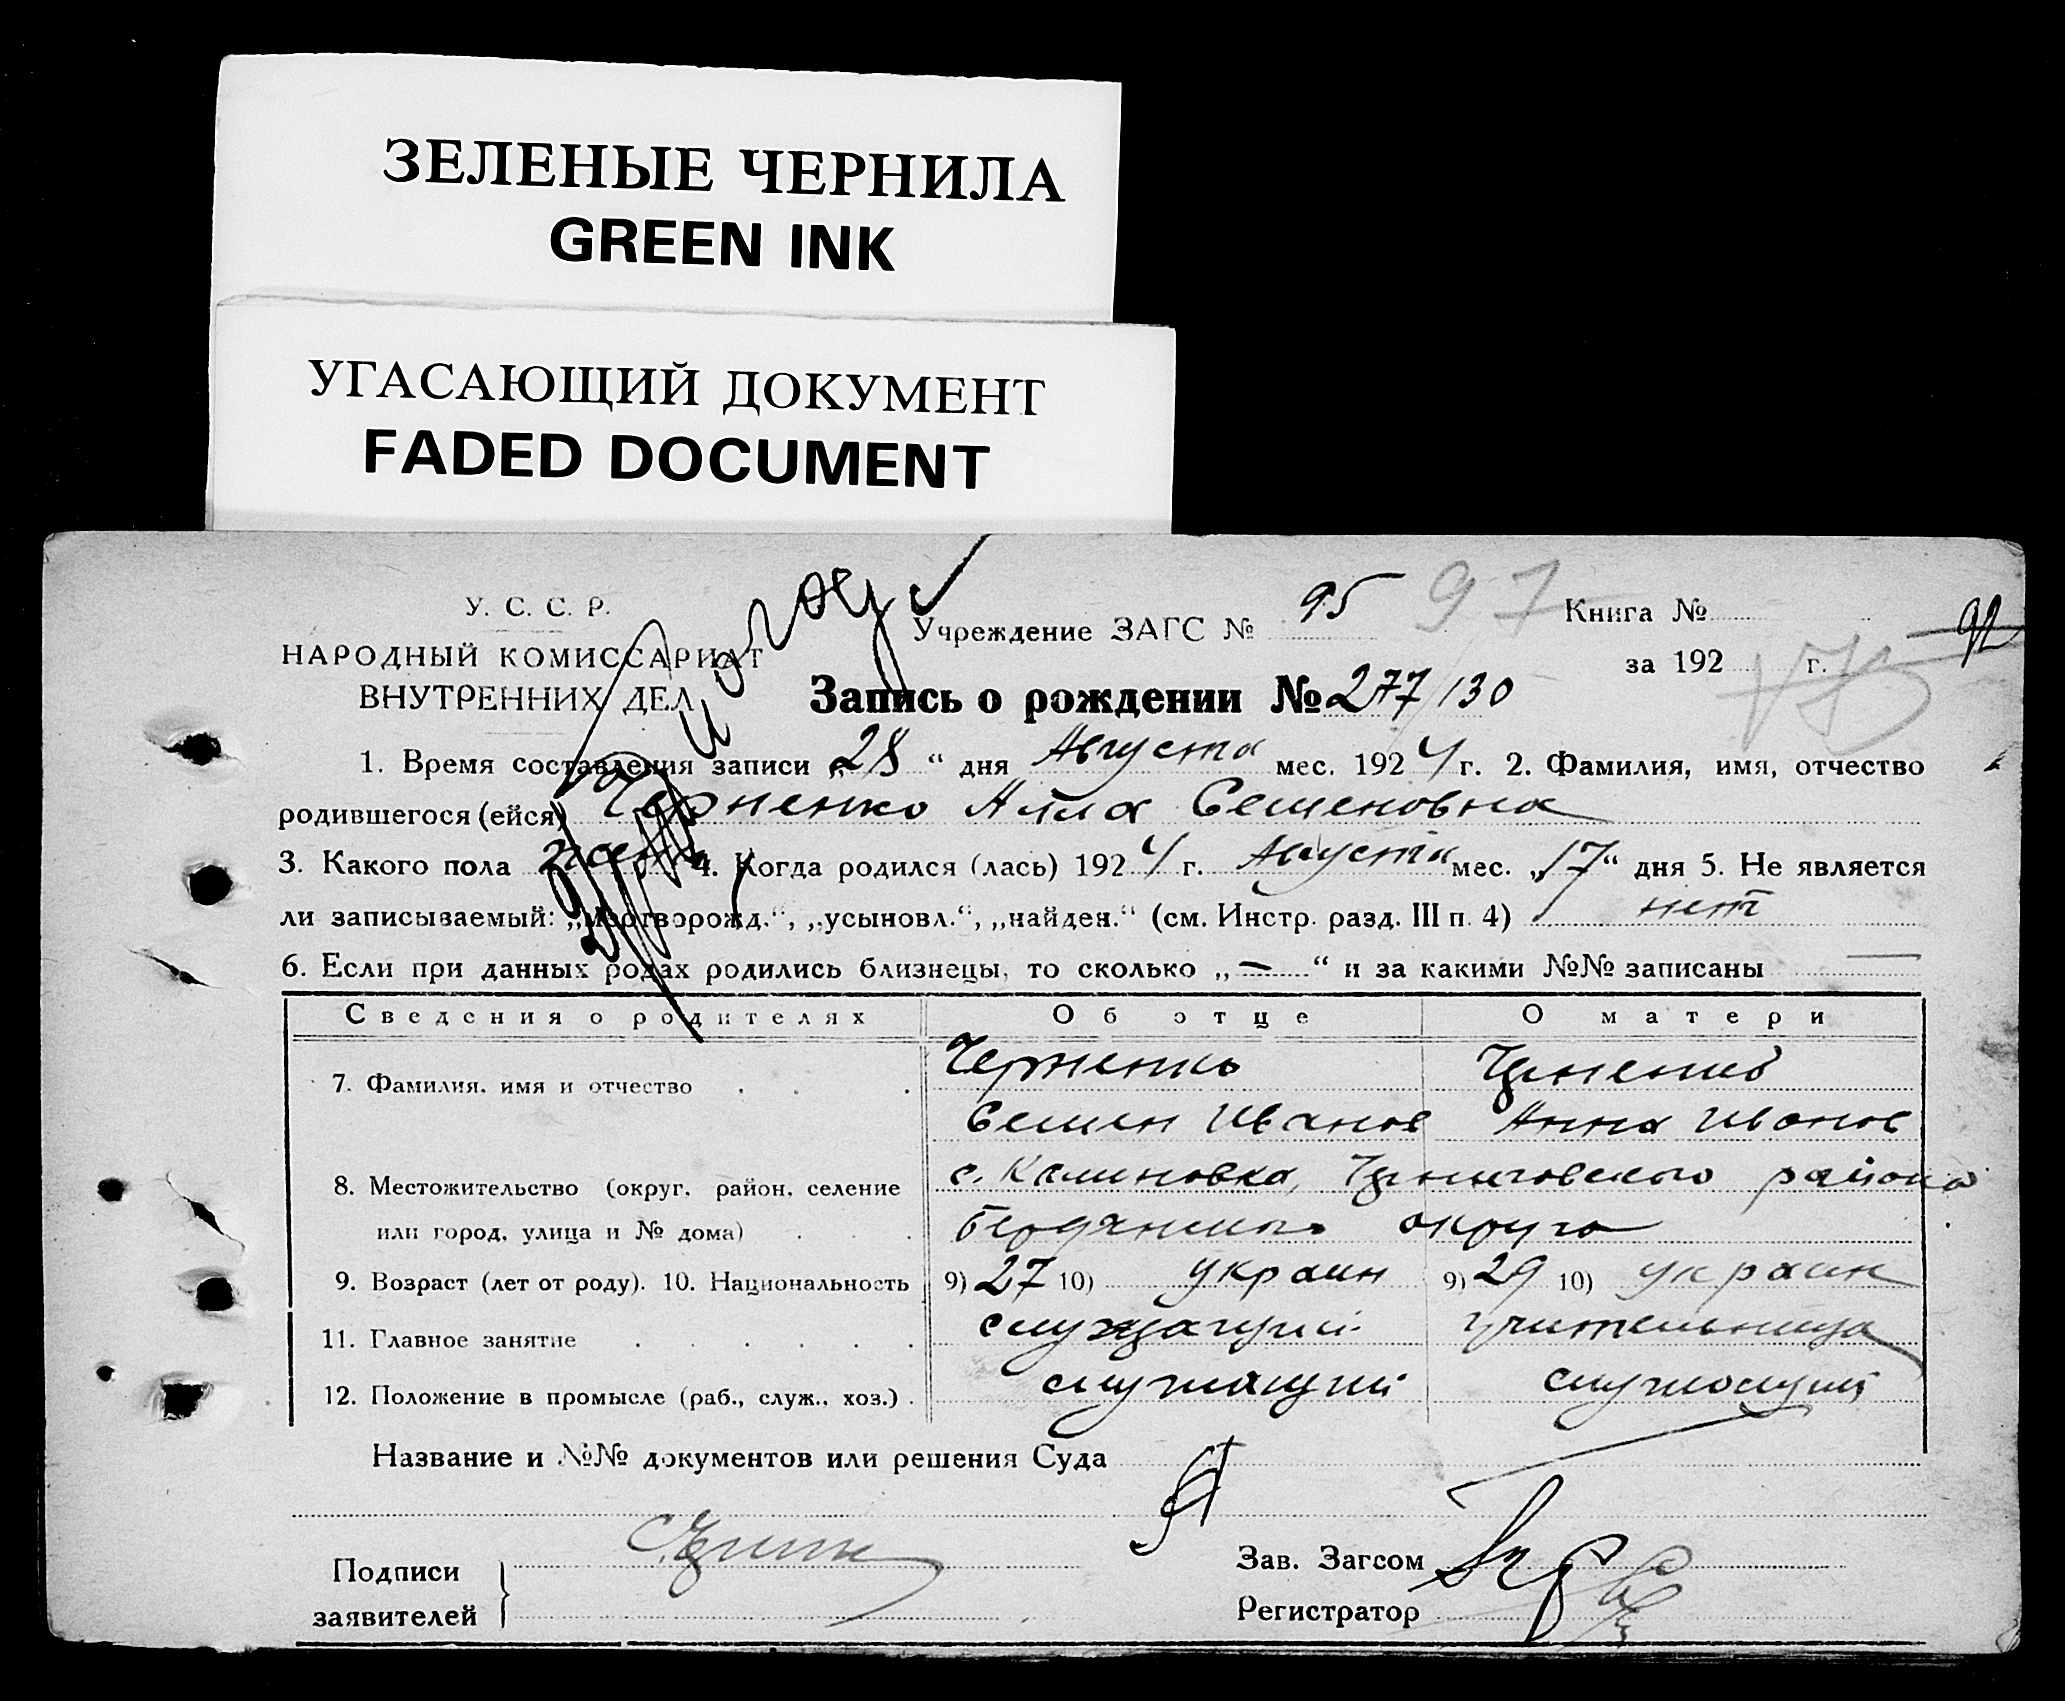 ЗЕЛЕНЫЕ ЧЕРНИЛА
GREEN INK
УГАСАЮЩИЙ ДОКУМЕНТ
FADED DOCUMENT
У. С. С. Р.
НАРОДНЫЙ КОМИССАРИАТ
ВНУТРЕННИХ ДЕЛ
Учреждение ЗАГС № 95 97
Книга № 92
за 192 г.
Запись о рождении № 277/130
1. Время составления записи „28“ дня Августа мес. 1924 г. 2. Фамилия, имя, отчество
родившегося (ейся) Черненко Алла Семеновна
3. Какого пола жен 4. Когда родился (лась) 1924 г. Августа мес. „17“ дня 5. Не является
ли записываемый: „мертворожд.“, „усыновл.“, „найден.“ (см. Инстр. разд. III п. 4) нет
6. Если при данных родах родились близнецы, то сколько „—“ и за какими №№ записаны —
Сведения о родителях Об отце О матери
7. Фамилия, имя и отчество Черненко Черненко
Семен Иванов Анна Иванов
8. Местожительство (округ, район, селение с. Калиновка, Черниговского района
или город, улица и № дома) Бердянского округа
9. Возраст (лет от роду). 10. Национальность 9) 27 10) украин 9) 29 10) украин
11. Главное занятие служащий учительница
12. Положение в промысле (раб., служ., хоз.) служащий служащий
Название и №№ документов или решения Суда
Подписи
заявителей
Зав. Загсом
Регистратор